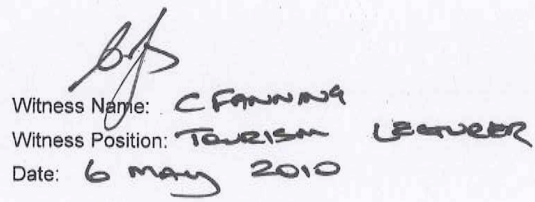 Witness Name: C FANNING
Witness Position: TOURISM LECTURER
Date: 6 MAY 2010